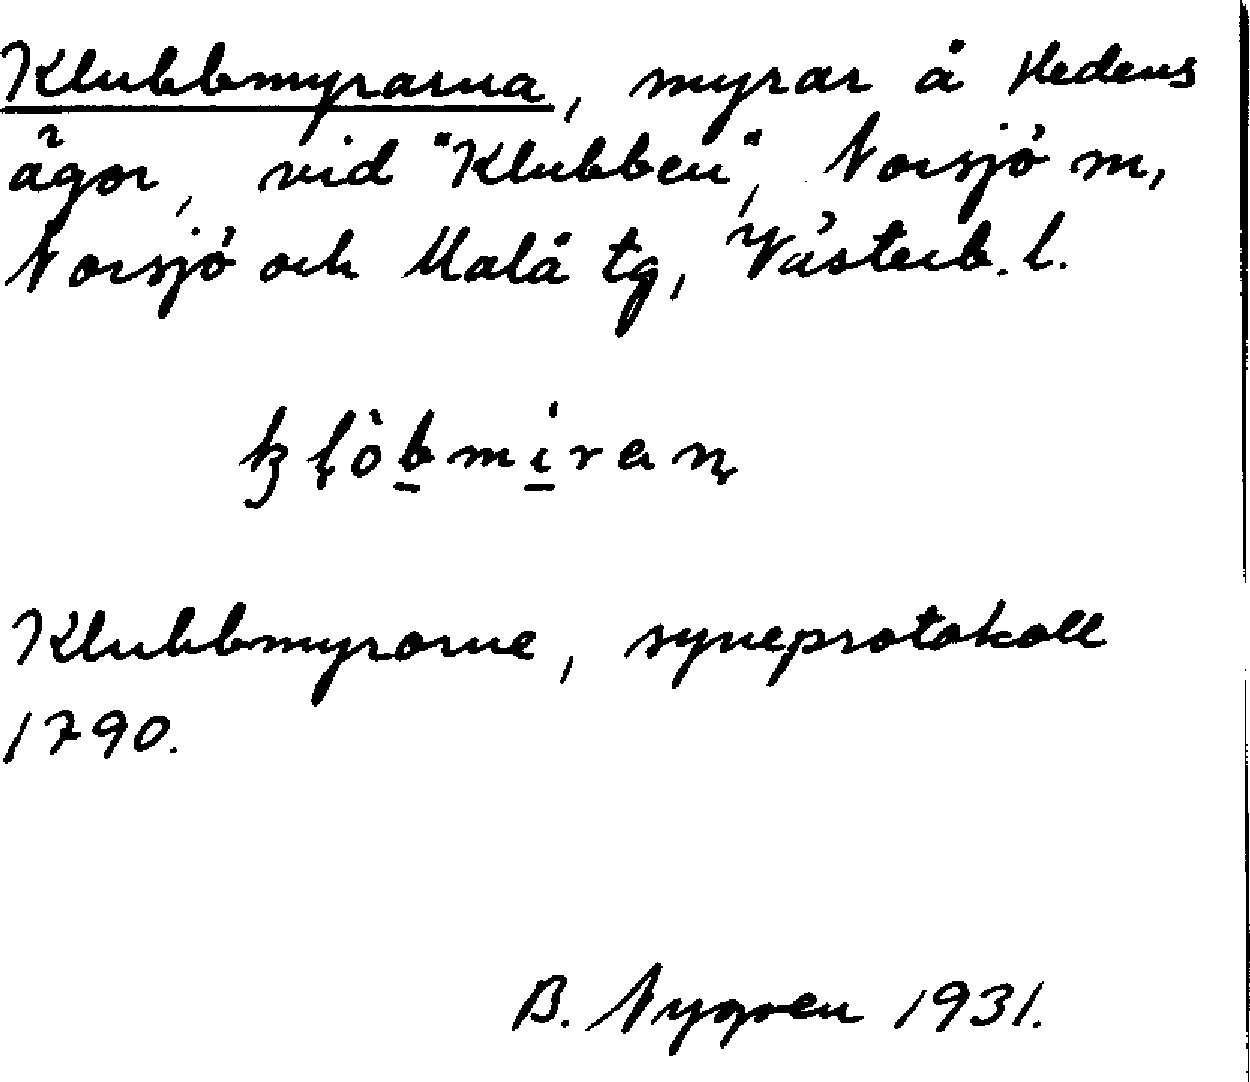 Klubbmyrarna, myrar å Hedens
ägor, vid "Klubben", Norsjö m,
Norsjö och Malå tg, Västerb. l.
Klubbmyrorne, syneprotokoll
1790.
B. Nygren 1931.